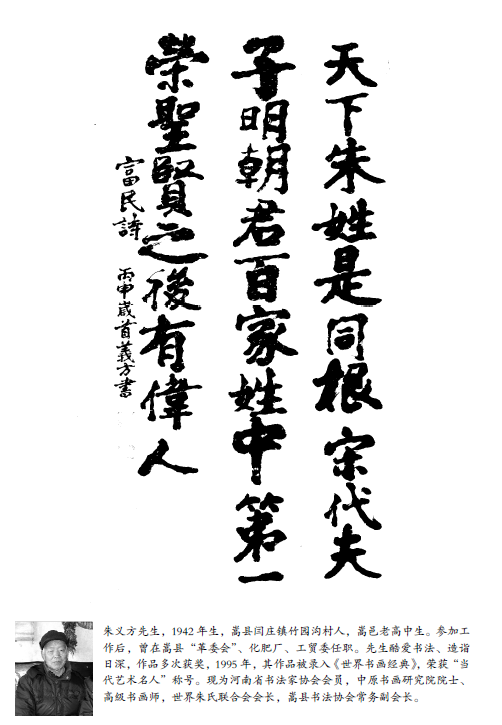 天下朱姓是同根宋代夫
子明朝君百家姓中第一
榮聖賢之後有偉人
富民詩
丙申歲首義方書
朱义方先生，1942 年生，嵩县闫庄镇竹园沟村人，嵩邑老高中生。参加工
作后，曾在嵩县“革委会”、化肥厂、工贸委任职。先生酷爱书法、造诣
日深，作品多次获奖，1995 年，其作品被录入《世界书画经典》，荣获“当
代艺术名人”称号。现为河南省书法家协会会员，中原书画研究院院士、
高级书画师，世界朱氏联合会会长，嵩县书法协会常务副会长。